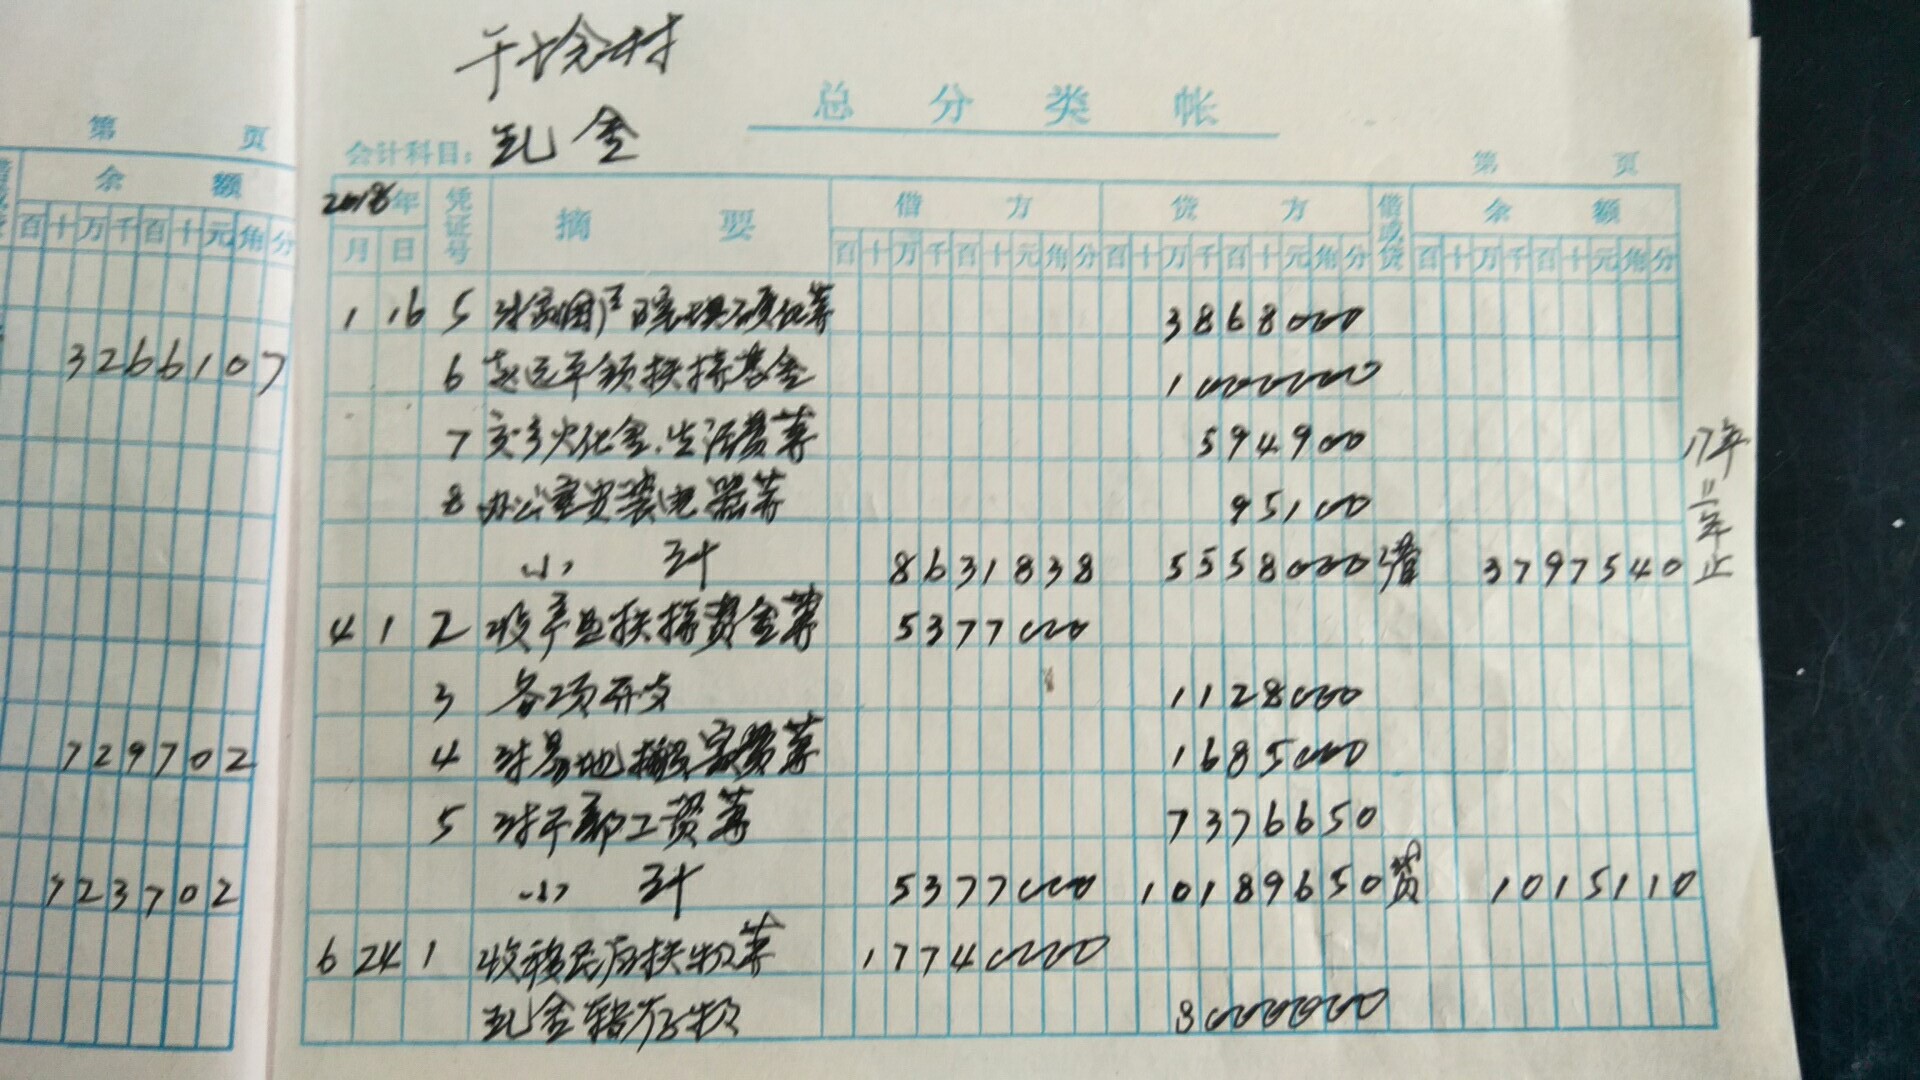 第 页
余 额
百十万千百十元角分
3266107
729702
723702
干坮村
总分类帐
会计科目: 现金
第 页
2018年 凭证号 摘要 借方 贷方 借或贷 余额
月 日 百十万千百十元角分 百十万千百十元角分 百十万千百十元角分
1 16 5 付贫困户院坝硬化等 3868000
6 赵运平领扶持基金 1000000
7 交乡火化金.生活费等 594900
8 办公室安装电器等 95100
小计 8631838 5558000 借 3797540
17年二年止
4 1 2 收产业扶持资金等 5377000
3 各项开支 1128000
4 付易地搬家费等 1685000
5 付干部工资等 7376650
小计 5377000 10189650 贷 1015110
6 24 1 收移民后扶款等 17740000
现金转存款 8000000